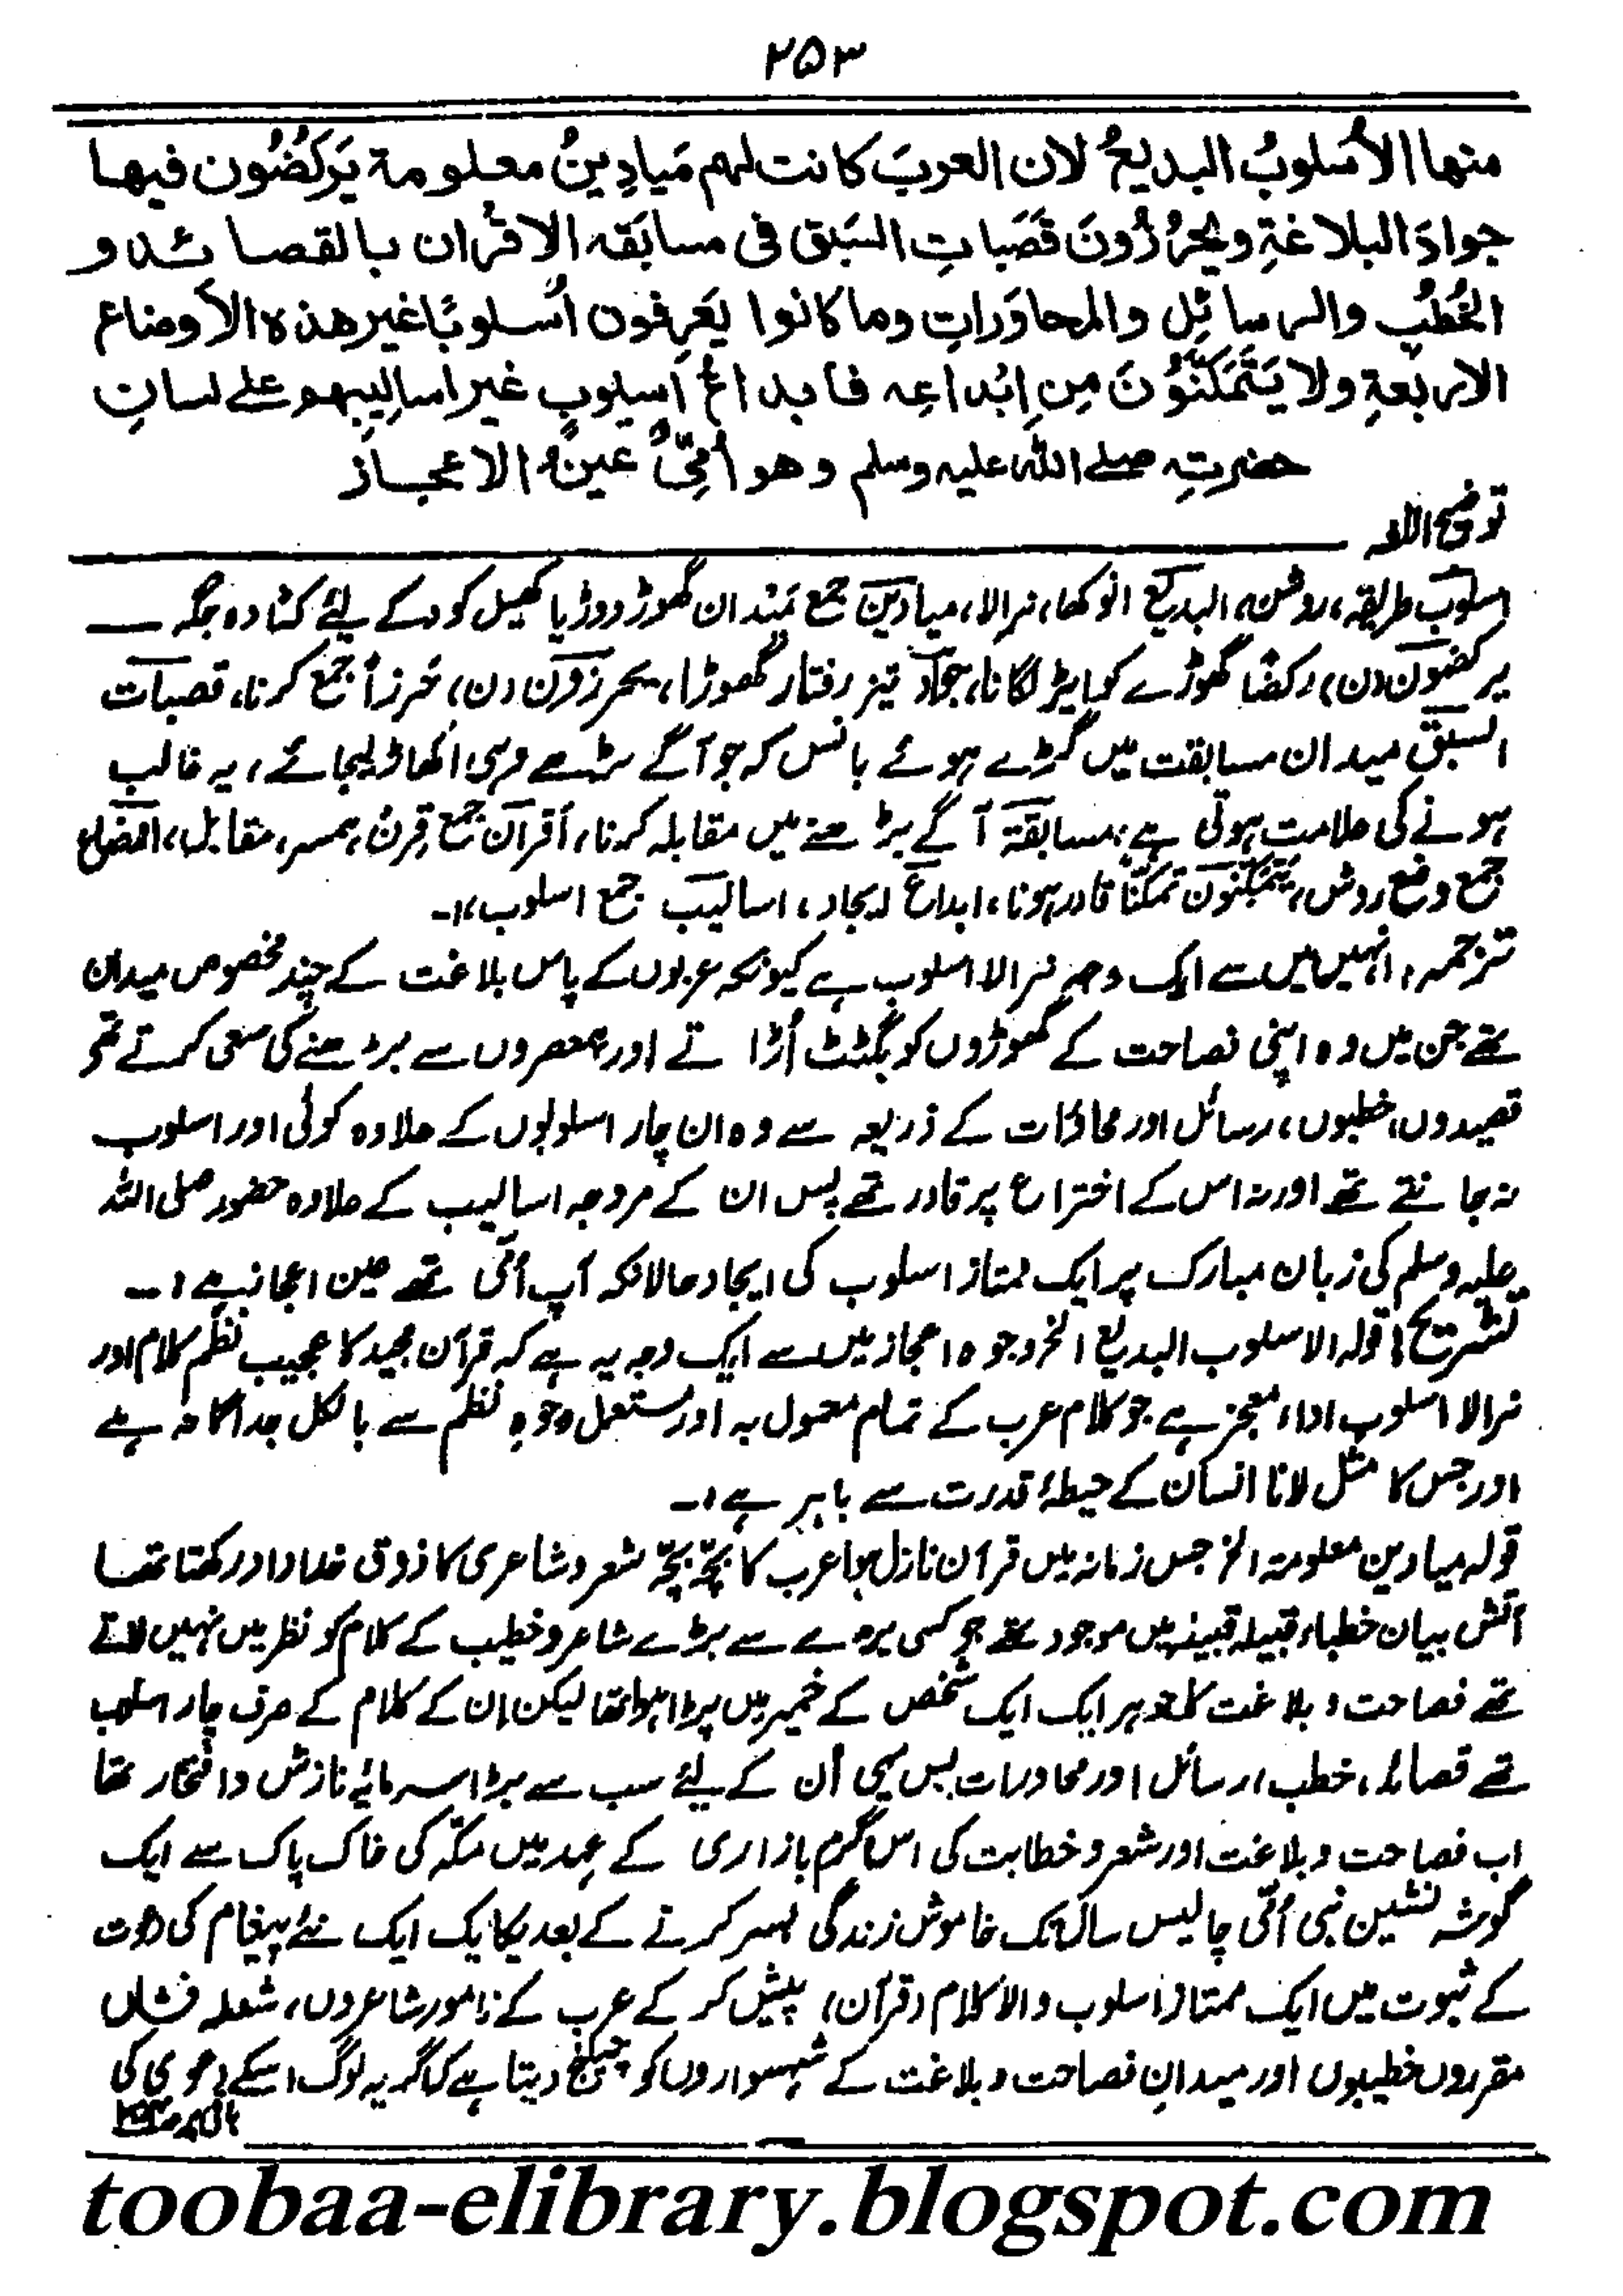 ۲۵۳
منها الأُسلوبُ البديعُ لان العربَ كانت لهم مَيادِينُ معلومة يَركُضُون فيها
جوادَ البلاغةِ ويحرُزُونَ قَصَباتِ السَبَق فى مسابَقه الاقْران بالقصائد و
الخُطَبِ والرسائِلِ والمحاوَراتِ وما كانوا يَعرِفون أُسلوبًا غير هذه الأوضاع
الاربعةِ ولا يَتَمَكّنُونَ مِن اِبْداعِه فابداعُ أسلوبٍ غير اساليبهم على لسانِ
حضرتِه صلے الله علیه وسلم وهو أُمِّيٌّ عينُ الاعجاز
توضیح اللغہ
اسلوب طریقہ، روش، البدیع انوکھا، نرالا، میادین جمع میدان گھوڑ دوڑ یا کھیل کود کے لئے کشادہ جگہ
یرکضون (ن) رکضاً گھوڑے کو ایڑ لگانا، جواد تیز رفتار گھوڑا، یحرزون (ن) حرزاً جمع کرنا، قصبات
السبق میدان مسابقت میں گڑے ہوئے بانس کہ جو آگے بڑھے وہی اکھاڑ لیجائے، یہ غالب
ہونے کی علامت ہوتی ہے، مسابقۃ آگے بڑھنے میں مقابلہ کرنا، أقران جمع قِرن، ہمسر، مقابل، اوضاع
جمع وضع روش، یتمکنون تمکناً قادر ہونا، ابداع ایجاد، اسالیب جمع اسلوب،،۔
ترجمہ، انہیں میں سے ایک وجہ نرالا اسلوب ہے کیونکہ عربوں کے پاس بلاغت کے چند مخصوص میدان
تھے جن میں وہ اپنی فصاحت کے گھوڑوں کو بگٹٹ اُڑا تے اور ہمعصروں سے بڑھنے کی سعی کرتے تھے
قصیدوں، خطبوں، رسائل اور محاورات کے ذریعہ سے وہ ان چار اسلوبوں کے علاوہ کوئی اور اسلوب
نہ جانتے تھے اور نہ اس کے اختراع پر قادر تھے پس ان کے مروجہ اسالیب کے علاوہ حضور صلی اللہ
علیہ وسلم کی زبان مبارک پر ایک ممتاز اسلوب کی ایجاد حالانکہ آپ اُمّی تھے عین اعجاز ہے،۔
تشریح، قولہ الاسلوب البدیع الخ وجوہ اعجاز میں سے ایک وجہ یہ ہے کہ قرآن مجید کا عجیب نظم کلام اور
نرالا اسلوب اداء معجز ہے جو کلام عرب کے تمام معمول بہ اور مستعمل وجوہِ نظم سے بالکل جداگانہ ہے
اور جس کا مثل لانا انسان کے حیطۂ قدرت سے باہر ہے،۔
قولہ میادین معلومۃ الخ جس زمانہ میں قرآن نازل ہوا عرب کا بچّہ بچّہ شعر و شاعری کا ذوق خداداد رکھتا تھا
آتش بیان خطباء قبیلہ قبیلہ میں موجود تھے جو کسی بڑے سے بڑے شاعر و خطیب کے کلام کو نظر میں نہیں لاتے
تھے فصاحت و بلاغت کا جوہر ایک ایک شخص کے خمیر میں پڑا ہوا تھا لیکن ان کے کلام کے صرف چار اسلوب
تھے قصائد، خطب، رسائل اور محاورات بس یہی اُن کے لئے سب سے بڑا سرمایۂ نازش و افتخار تھا
اب فصاحت و بلاغت اور شعر و خطابت کی اس گرم بازاری کے عہد میں مکّہ کی خاک پاک سے ایک
گوشہ نشین نبی اُمّی چالیس سال تک خاموش زندگی بسر کرنے کے بعد یکایک ایک نئے پیغام کی دعوت
کے ثبوت میں ایک ممتاز اسلوب والا کلام (قرآن) پیش کر کے عرب کے نامور شاعروں، شعلہ فشاں
مقرروں خطیبوں اور میدانِ فصاحت و بلاغت کے شہسواروں کو چیلنج دیتا ہے کہ اگر یہ لوگ اسکے دعوی کی
toobaa-elibrary.blogspot.com